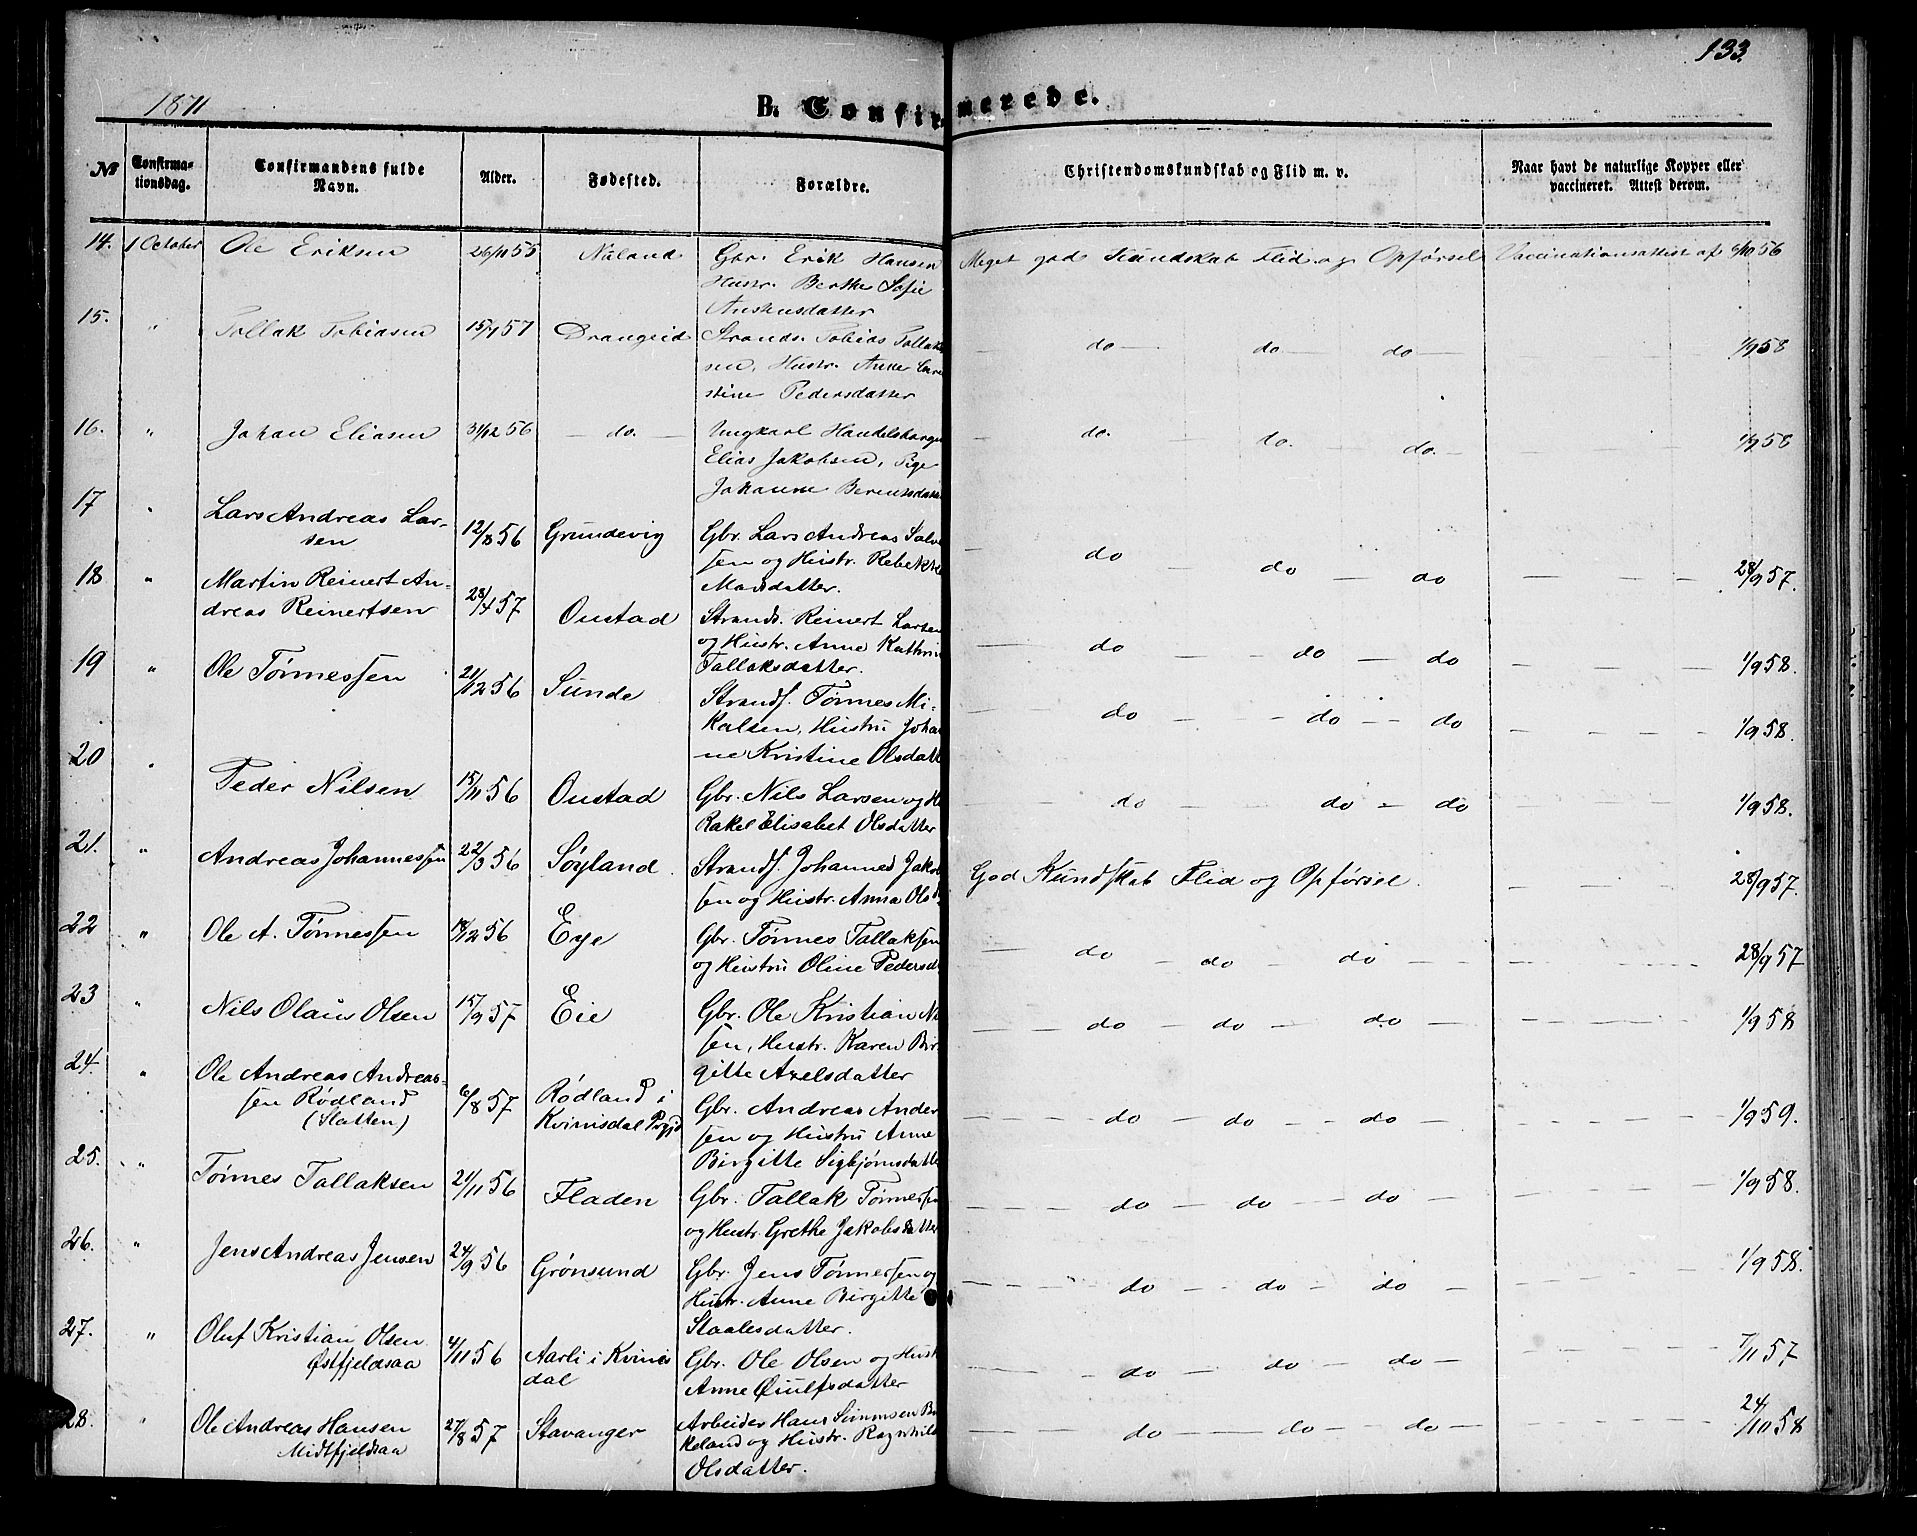 133.
1871
B. Confirmerede.
№ Confirma-
tionsdag. Confirmandens fulde
Navn. Alder. Fødested. Forældre. Christendomskundskab og Flid m. v. Naar havt de naturlige Kopper eller
vaccineret. Attest derom.
14. 1 October Ole Eriksen 26/11 55 Naland Gbr. Erik Hansen Meget god Kundskab Flid og Opførsel Vaccinationsattest af 56
Hustr. Berthe Sofie
15. " Tollak Tobiasen 15/1 57 Drangeid Strands. Tobias Tollak
sen, Hustr. Anne — do — do — do — 1/9 58
stine Pedersdatter
16. " Johan Eliasen 31/12 56 — do. — Ungkarl — do. — do. — do. — 1/9 58
Elias Jakobsen, Pige
Johanne
17 " Lars Andreas Lar-
sen 12/8 56 Grundevig Gbr. Lars Andreas
sen og Hustr. Rebekke — do — do — do — 28/9 57.
Monsdatter.
18 " Martin Reinert An-
dreas Reinertsen 28/4 57 Oustad Strands. Reinert Larsen
og Hustr. Anne Kathri — do — do — do — 1/9 58.
Tallaksdatter.
19 " Ole Tønnessen 21/12 56 Sunde Strands. Tønnes Mi-
kalsen, Hustru Joha — do — do — do — 1/9 58.
ne Kristine Olsdatt
20 " Peder Nilsen 15/11 56 Oustad Gbr. Nils Larsen og H — do — do — do — 1/9 58.
Rakel Elisabet Olsdatter
21. " Andreas Johannessen 22/3 56 Søyland Strands. Johannes Jakob God Kundskab Flid og Opførsel. — 28/9 57.
sen og Hustr. Anna Ols
22 " Ole A. Tønnessen 18/12 56 Eye Gbr. Tønnes Tallaksen — do — do — do — 28/9 57
og Hustru Oline Pedersd
23 " Nils Olaus Olsen 15/9 57 Eie Gbr. Ole Kristian — do — do — do — 1/9 58
sen, Hustr. Karen Bir-
gitte Axelsdatter
24. " Ole Andreas Andreas-
sen Rødland
(Slatten) 6/8 57 Rødland i
Kvinisdal Prgjd Gbr. Andreas Ander
sen og Hustru Anne — do — do — do — 1/9 59.
Birgitte Sigbjørnsdatte
25. " Tønnes Tallaksen 21/11 56 Fladen Gbr. Tallak Tønnessen — do — do — do — 1/9 58.
og Hustr. Grethe Jakobsdatter
26. " Jens Andreas Jensen 24/9 56 Grønsund Gbr. Jens Tønnessen og — do — do — do — 1/9 58.
Hustr. Anne Birgitte
Staalesdatter.
27. " Oluf Kristian Olsen
Østfjeldsaa 4/11 56 Aarli i Kvinis
dal Gbr. Ole Olsen og Hust — do — do — do — 7/11 57
Anne Øiulfsdatter
28. " Ole Andreas Hansen
Midtfjeldsaa 27/8 57 Stavanger Arbeider Hans Simmsen Bir
keland og Hustr. Ragnhild — do — do — do — 24/10 58
Olsdatter.